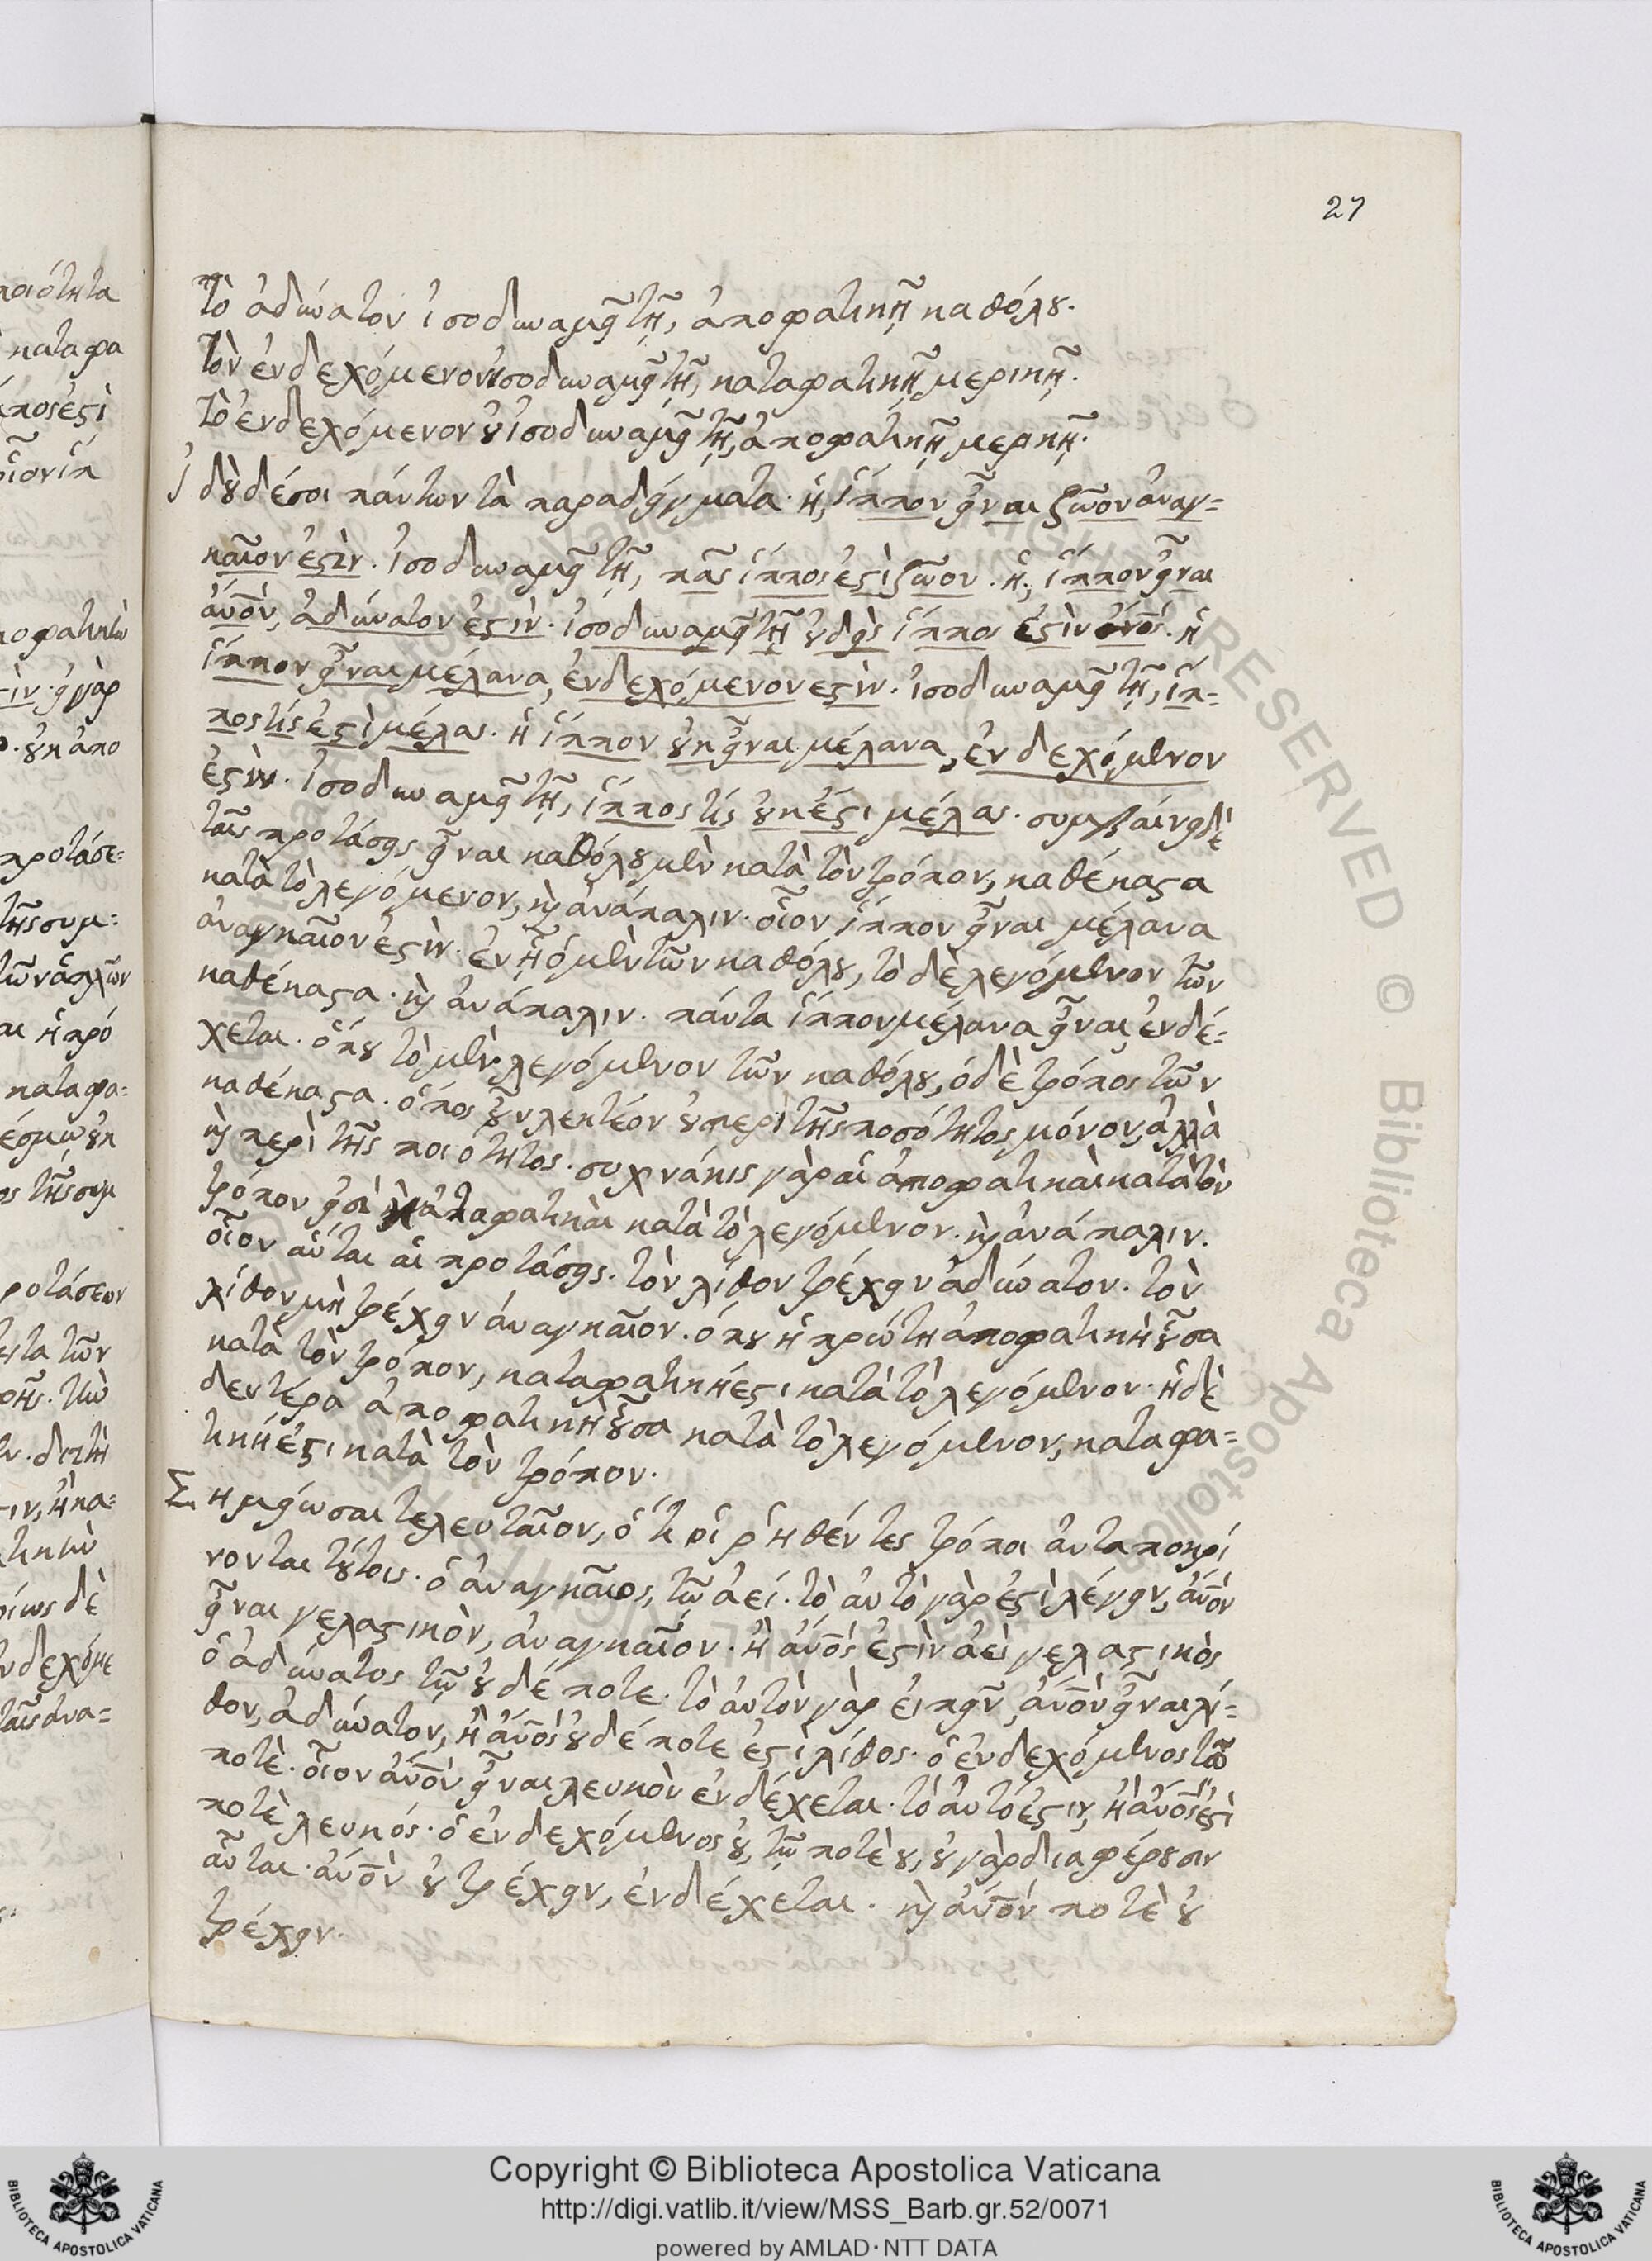 27
τὸ ἀδύνατον ἰσοδυναμεῖ τῇ, ἀποφατικῇ καθόλου.
τὸν ἐνδεχόμενον ἰσοδυναμεῖ τῇ, καταφατικῇ μερικῇ.
τὸ ἐνδεχόμενον οὐ ἰσοδυναμεῖ τῇ, ἀποφατικῇ μερικῇ.
ἰδοὺ δέ σοι πάντων τὰ παραδείγματα. ἡ, ἵππον εἶναι ζῶον ἀναγ=
καῖον ἐστὶν. ἰσοδυναμεῖ τῇ, πᾶς ἵππος ἐστὶ ζῶον. ἡ, ἵππον εἶναι
ἄνον, ἀδύνατον ἐστιν. ἰσοδυναμεῖ τῇ οὐδεὶς ἵππος ἐστὶν ἄνος. ἡ
ἵππον εἶναι μέλανα, ἐνδεχόμενον εστὶν. ἰσοδυναμεῖ τῇ, ἵπ=
πος τίς ἐστὶ μέλας. ἡ ἵππον οὐκ εἶναι μέλανα, ἐνδεχόμενον
ἐστὶν. ἰσοδυναμεῖ τῇ, ἵππος τίς οὐκ ἔστι μέλας. συμβαίνει δὲ
ταῖς προτάσεις εἶναι καθόλου μὲν κατὰ τὸν τρόπον, καθέκαστα
κατὰ τὸ λεγόμενον, καὶ ἀνάπαλιν. οἷον ἵππον εἶναι μέλανα
ἀναγκαῖον ἐστὶν. ἐν ᾗ ὁ μὲν τῶν καθόλου, τὸ δὲ λεγόμενον τῶν
καθέκαστα. καὶ ἀνάπαλιν. πάντα ἵππον μέλανα εἶναι ἐνδέ=
χεται. ὅπου τὸ μὲν λεγόμενον τῶν καθόλου, ὁ δὲ τρόπος τῶν
καθέκαστα. ὅπως οὖν λεκτέον οὐ περὶ τῆς ποσότητος μόνον, ἀλλὰ
καὶ περὶ τῆς ποιότητος. συχνάκις γὰρ αἱ ἀποφατικαὶ κατὰ τὸν
τρόπον εἰσὶ καταφατικαὶ κατὰ τὸ λεγόμενον. καὶ ἀνάπαλιν.
οἷον αὗται αἱ προτάσεις. τὸν λίθον τρέχειν ἀδύνατον. τὸν
λίθον μὴ τρέχειν ἀναγκαῖον. ὅπου ἡ πρώτη ἀποφατικὴ οὖσα
κατὰ τὸν τρόπον, καταφατική ἐστι κατὰ τὸ λεγόμενον. ἡ δὲ
δευτέρα ἀποφατικὴ οὖσα κατὰ τὸ λεγόμενον, καταφα=
τική ἐστι κατὰ τὸν τρόπον.
Σημείωσαι τελευταῖον, ὅτι οἱ ῥηθέντες τρόποι ἀνταποκρί
νονται τούτοις. ὁ ἀναγκαῖος, τῷ ἀεί. τὸ αὐτὸ γάρ ἐστὶ λέγειν, ἄνον
εἶναι γελαστικὸν, ἀναγκαῖον. ἢ ἄνος ἐστὶν ἀεὶ γελαστικὸς
ὁ ἀδύνατος τῷ οὐδέποτε. τὸ αὐτὸν γὰρ εἰπεῖν, ἄνον εἶναι λί=
θον, ἀδύνατον, ἢ ἄνος οὐδέποτε ἐστὶ λίθος. ὁ ἐνδεχόμενος τῷ
ποτὲ. οἷον ἄνον εἶναι λευκὸν ἐνδέχεται. τὸ αὐτό ἐστιν, ἢ ἄνος ἐστὶ
ποτὲ λευκός. ὁ ἐνδεχόμενος οὐ, τῷ ποτὲ οὐ, οὐ γὰρ διαφέρουσιν
αὗται. ἄνον οὐ τρέχειν, ἐνδέχεται. καὶ ἄνον ποτὲ οὐ
τρέχειν.
Copyright © Biblioteca Apostolica Vaticana
http://digi.vatlib.it/view/MSS_Barb.gr.52/0071
powered by AMLAD·NTT DATA